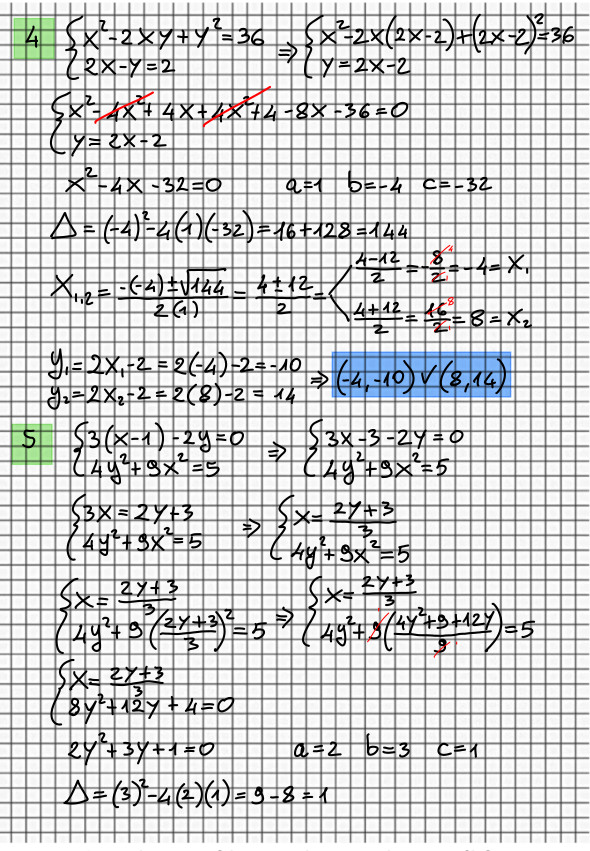 4 { x²-2xy+y²=36 ⇒ { x²-2x(2x-2)+(2x-2)²=36
{ 2x-y=2 { y=2x-2
{ x²-4x²+4x+4x²+4-8x-36=0
{ y=2x-2
x²-4x-32=0 a=1 b=-4 c=-32
Δ=(-4)²-4(1)(-32)=16+128=144
x₁,₂= (-(-4)±√144)/(2(1)) = (4±12)/2 = < (4-12)/2 = -8/2 = -4 = x₁
(4+12)/2 = 16/2 = 8 = x₂
y₁=2x₁-2=2(-4)-2=-10
y₂=2x₂-2=2(8)-2=14 ⇒ (-4,-10) ∨ (8,14)
5 { 3(x-1)-2y=0 ⇒ { 3x-3-2y=0
{ 4y²+9x²=5 { 4y²+9x²=5
{ 3x=2y+3 ⇒ { x=(2y+3)/3
{ 4y²+9x²=5 { 4y²+9x²=5
{ x=(2y+3)/3 ⇒ { x=(2y+3)/3
{ 4y²+9((2y+3)/3)²=5 { 4y²+9((4y²+9+12y)/9)=5
{ x=(2y+3)/3
{ 8y²+12y+4=0
2y²+3y+1=0 a=2 b=3 c=1
Δ=(3)²-4(2)(1)=9-8=1